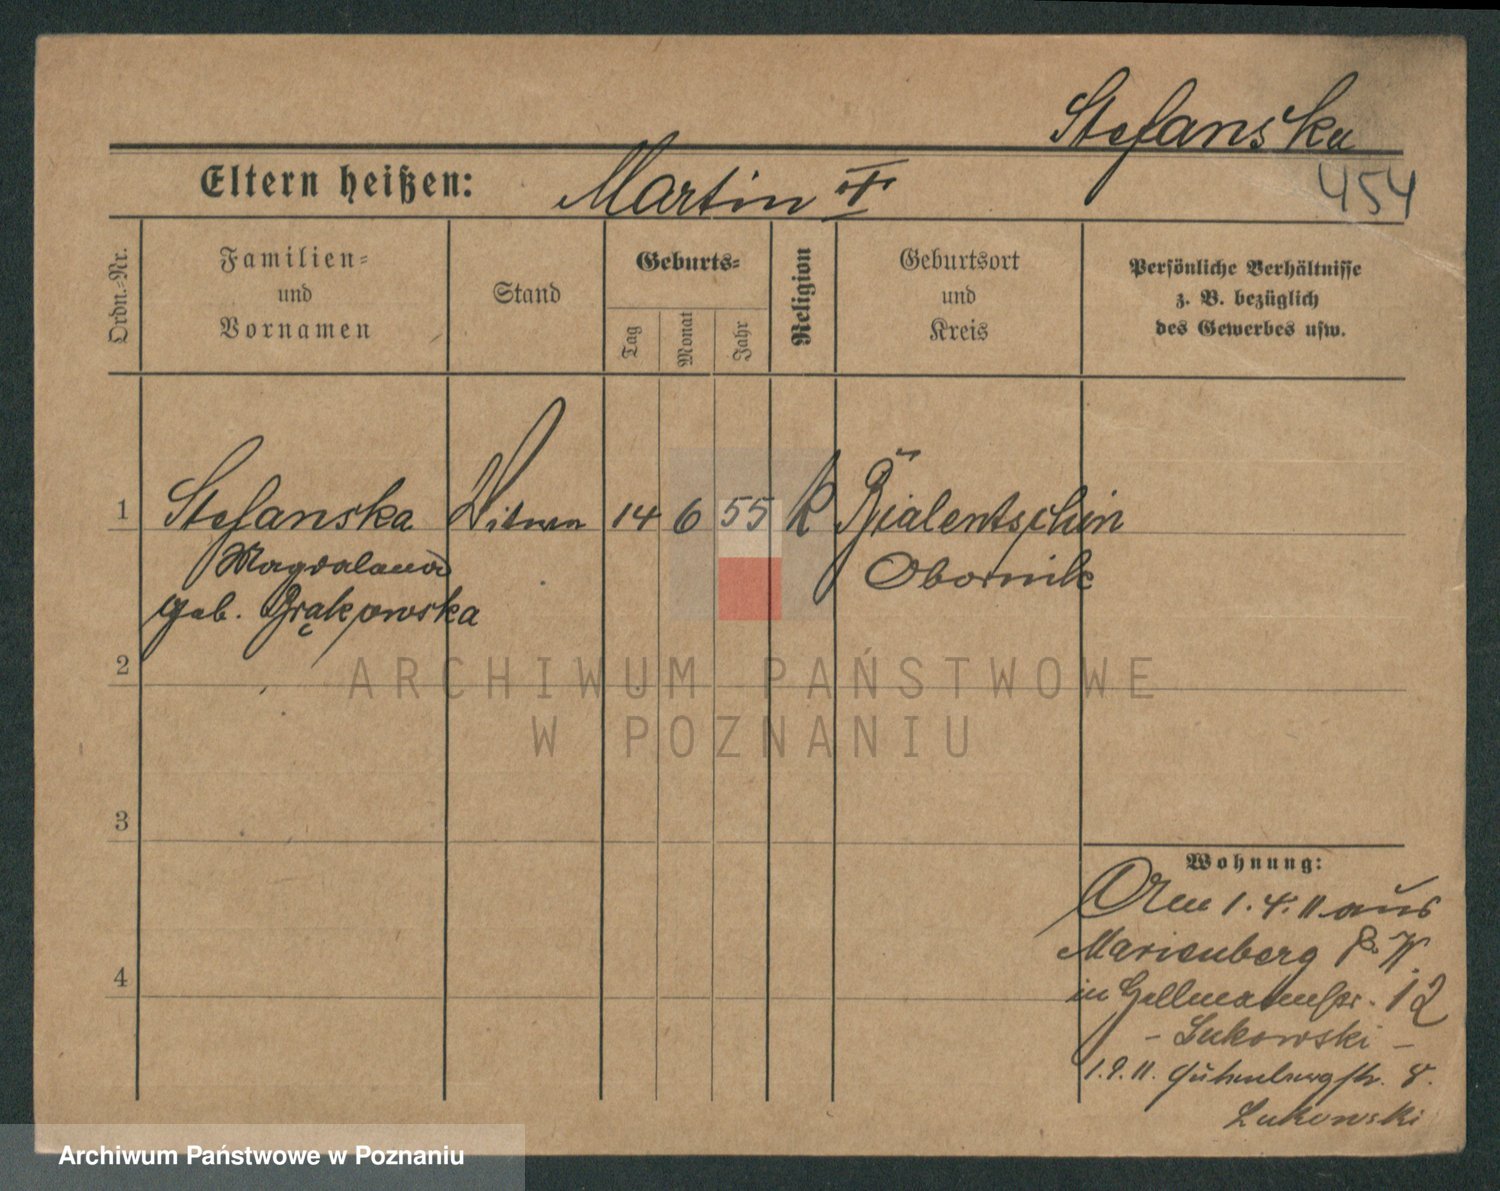 Stefanska
454
Eltern heißen: Martin †
Ordn.-Nr.
Familien-
und
Vornamen
Stand
Geburts-
Tag
Monat
Jahr
Religion
Geburtsort
und
Kreis
Persönliche Verhältnisse
z. B. bezüglich
des Gewerbes usw.
1 Stefanska Witwe 14 6 55 K Bialentschin
Magdalena Obornik
geb. Brąkowska
2
3
4
Wohnung:
1.4.11 aus
Marienberg P. W.
in 12
- Lukowski -
1.9.11. Gutenbergstr. 8.
Lukowski
ARCHIWUM PAŃSTWOWE
W POZNANIU
Archiwum Państwowe w Poznaniu